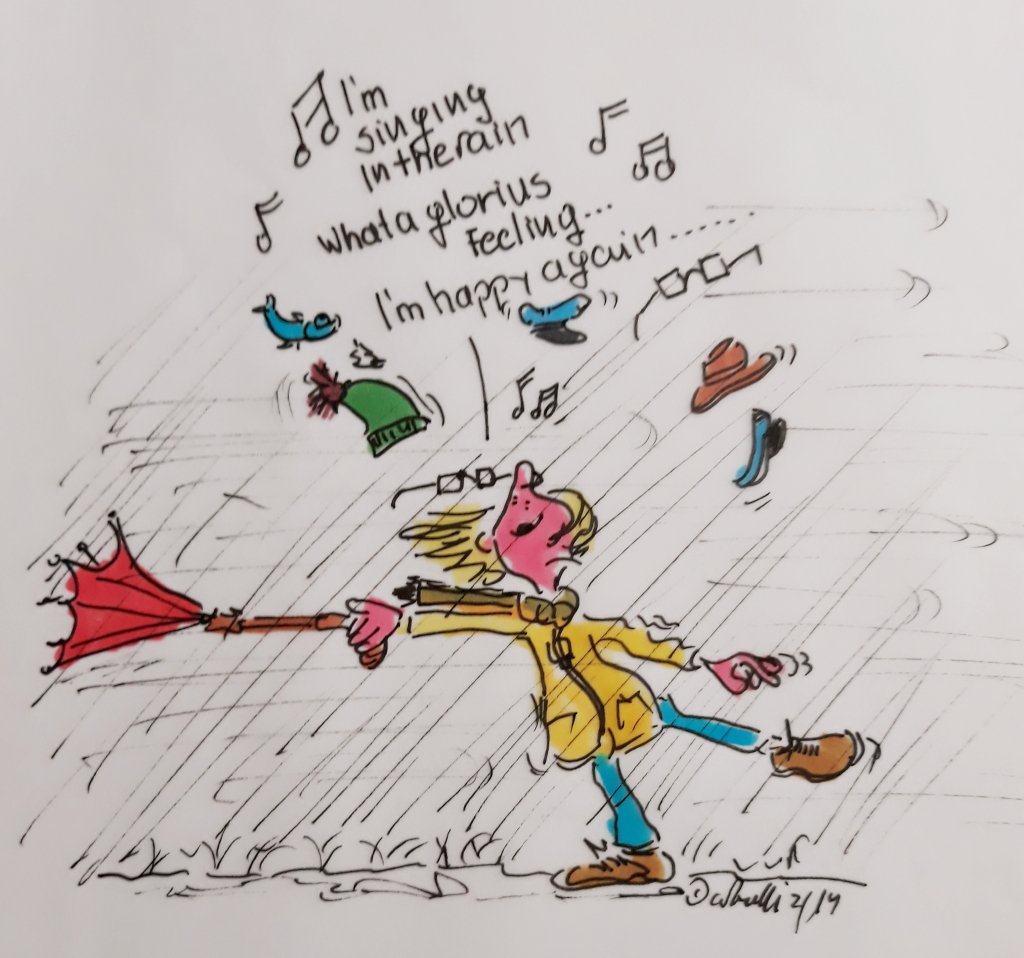 I'm
singing
in the rain
what a glorius
Feeling...
I'm happy again......
© 2/19